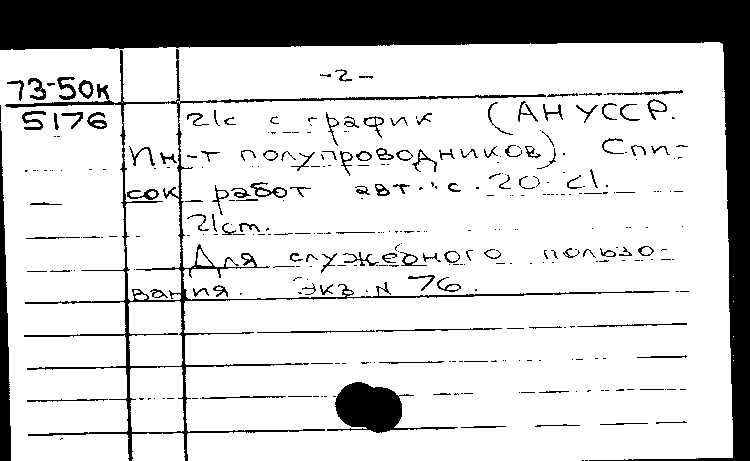 -2-
73-50к
5176
21с с график (АН УССР.
Ин-т полупроводников). Спи-
сок работ авт.: с. 20-21.
21см.
Для служебного пользо-
вания. Экз. N 76.